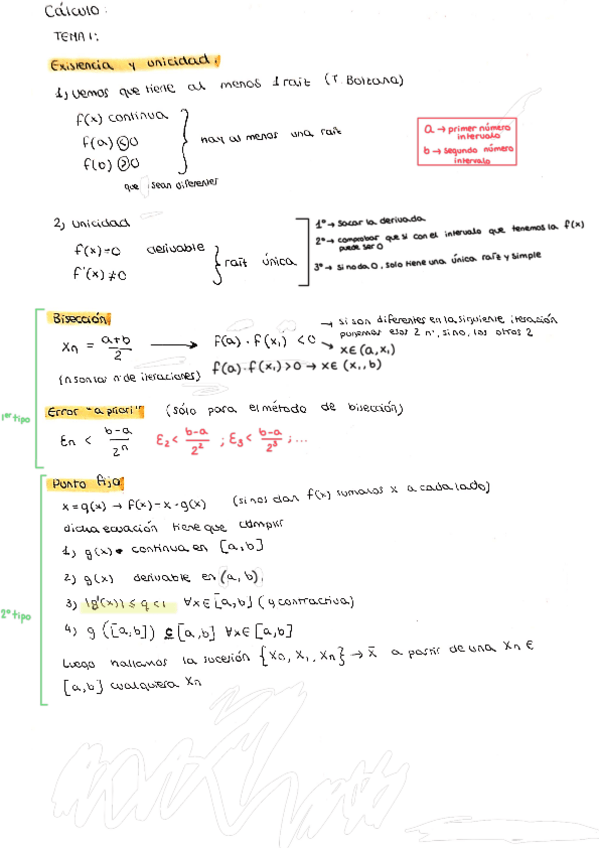 Cálculo:
TEMA 1:
Existencia y unicidad.
1) vemos que tiene al menos 1 raíz (T. Bolzano)
f(x) continua
f(a) < 0
f(b) > 0
hay al menos una raíz
que sean diferentes
a → primer número
intervalo
b → segundo número
intervalo
2) unicidad
f(x)=0 derivable
f'(x) ≠ 0
raíz única
1º → sacar la derivada
2º → comprobar que si con el intervalo que tenemos la f(x)
puede ser 0
3º → si no da 0, solo tiene una única raíz y simple
1er tipo
Bisección
Xn = a+b/2 → f(a) · f(x1) < 0
→ si son diferentes en la siguiente iteración
ponemos esos 2 nº, sino, los otros 2
→ x∈(a,x1)
(n son los nº de iteraciones) f(a)·f(x1)>0 → x∈ (x1,b)
Error "a priori" (sólo para el método de bisección)
En < b-a/2^n E2 < b-a/2^2 ; E3 < b-a/2^3 ; ...
2º tipo
Punto fijo
x = g(x) → f(x) - x - g(x) (si nos dan f(x) sumamos x a cada lado)
dicha ecuación tiene que cumplir
1) g(x) continua en [a,b]
2) g(x) derivable en (a,b).
3) |g'(x)| ≤ q < 1 ∀x∈[a,b] (y contractiva)
4) g([a,b]) ⊆ [a,b] ∀x∈[a,b]
Luego hallamos la sucesión {Xn, X1, Xn} → x̄ a partir de una Xn ∈
[a,b] cualquiera Xn